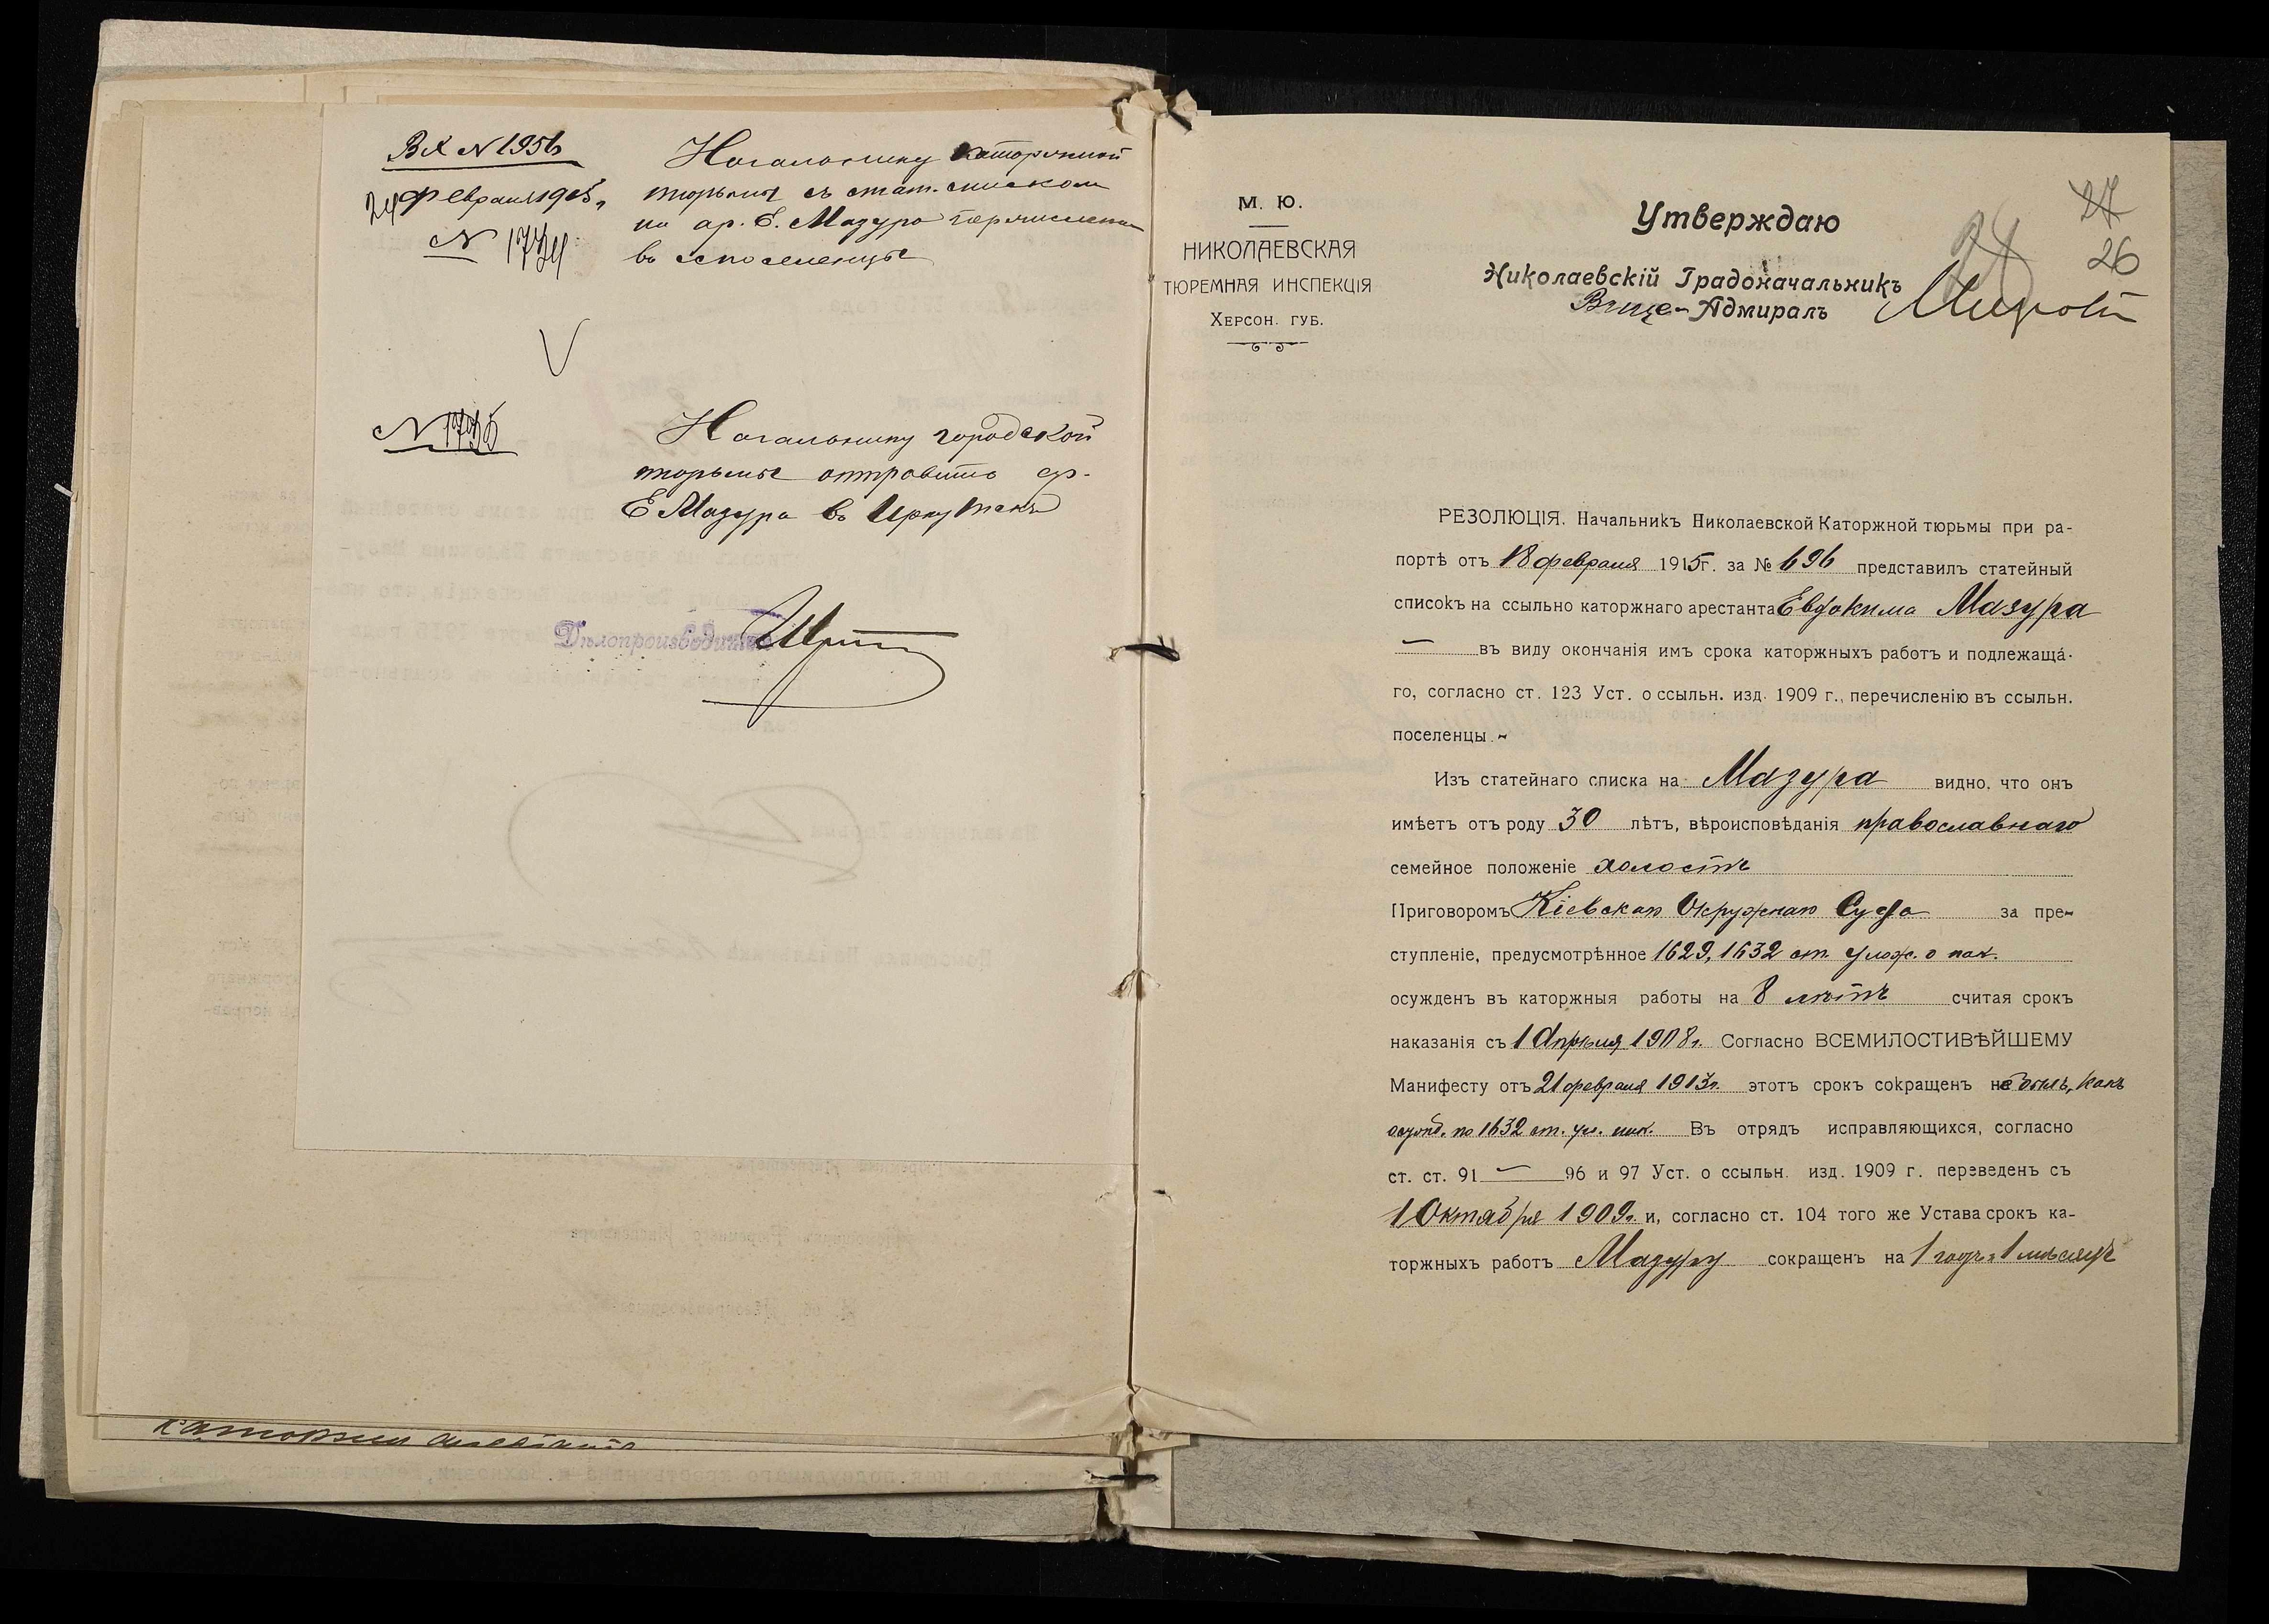 Вх N 1956
24 февраля 1915 г.
N 1734
Начальнику каторжной
тюрьмы съ стат. списком
на ар. Е. Мазура перечислен
в сс поселенцы
N 1735
Начальнику городской
тюрьмы отправить ар.
Е Мазура въ Иркутскъ
Дѣлопроизводитель
каторжн арестанта
М. Ю.
НИКОЛАЕВСКАЯ
ТЮРЕМНАЯ ИНСПЕКЦІЯ
ХЕРСОН. ГУБ.
27
26
Утверждаю
Николаевскій Градоначальникъ
Вице-Адмиралъ
РЕЗОЛЮЦІЯ. Начальникъ Николаевской Каторжной тюрьмы при ра-
портѣ отъ 18 февраля 1915г. за № 696 представилъ статейный
списокъ на ссыльно каторжнаго арестанта Евдокима Мазура
— въ виду окончанія имъ срока каторжныхъ работъ и подлежаща-
го, согласно ст. 123 Уст. о ссыльн. изд. 1909 г., перечисленію въ ссыльн.
поселенцы.~
Изъ статейнаго списка на Мазура видно, что онъ
имѣетъ отъ роду 30 лѣтъ, вѣроисповѣданія православнаго
семейное положеніе холостъ
Приговоромъ Кіевскаго Окружнаго Суда за пре-
ступленіе, предусмотрѣнное 1629, 1632 ст. улож. о нак.
осужденъ въ каторжныя работы на 8 лѣтъ считая срокъ
наказанія съ 1 Апрѣля 1908г. Согласно ВСЕМИЛОСТИВѢЙШЕМУ
Манифесту отъ 21 февраля 1913г. этотъ срокъ сокращенъ не былъ, какъ
осужд. по 1632 ст. ул. нак. Въ отрядъ исправляющихся, согласно
ст. ст. 91 — 96 и 97 Уст. о ссыльн. изд. 1909 г. переведенъ съ
1 Октября 1909г. и, согласно ст. 104 того же Устава срокъ ка-
торжныхъ работъ Мазуру сокращенъ на 1 годъ и 1 мѣсяцъ